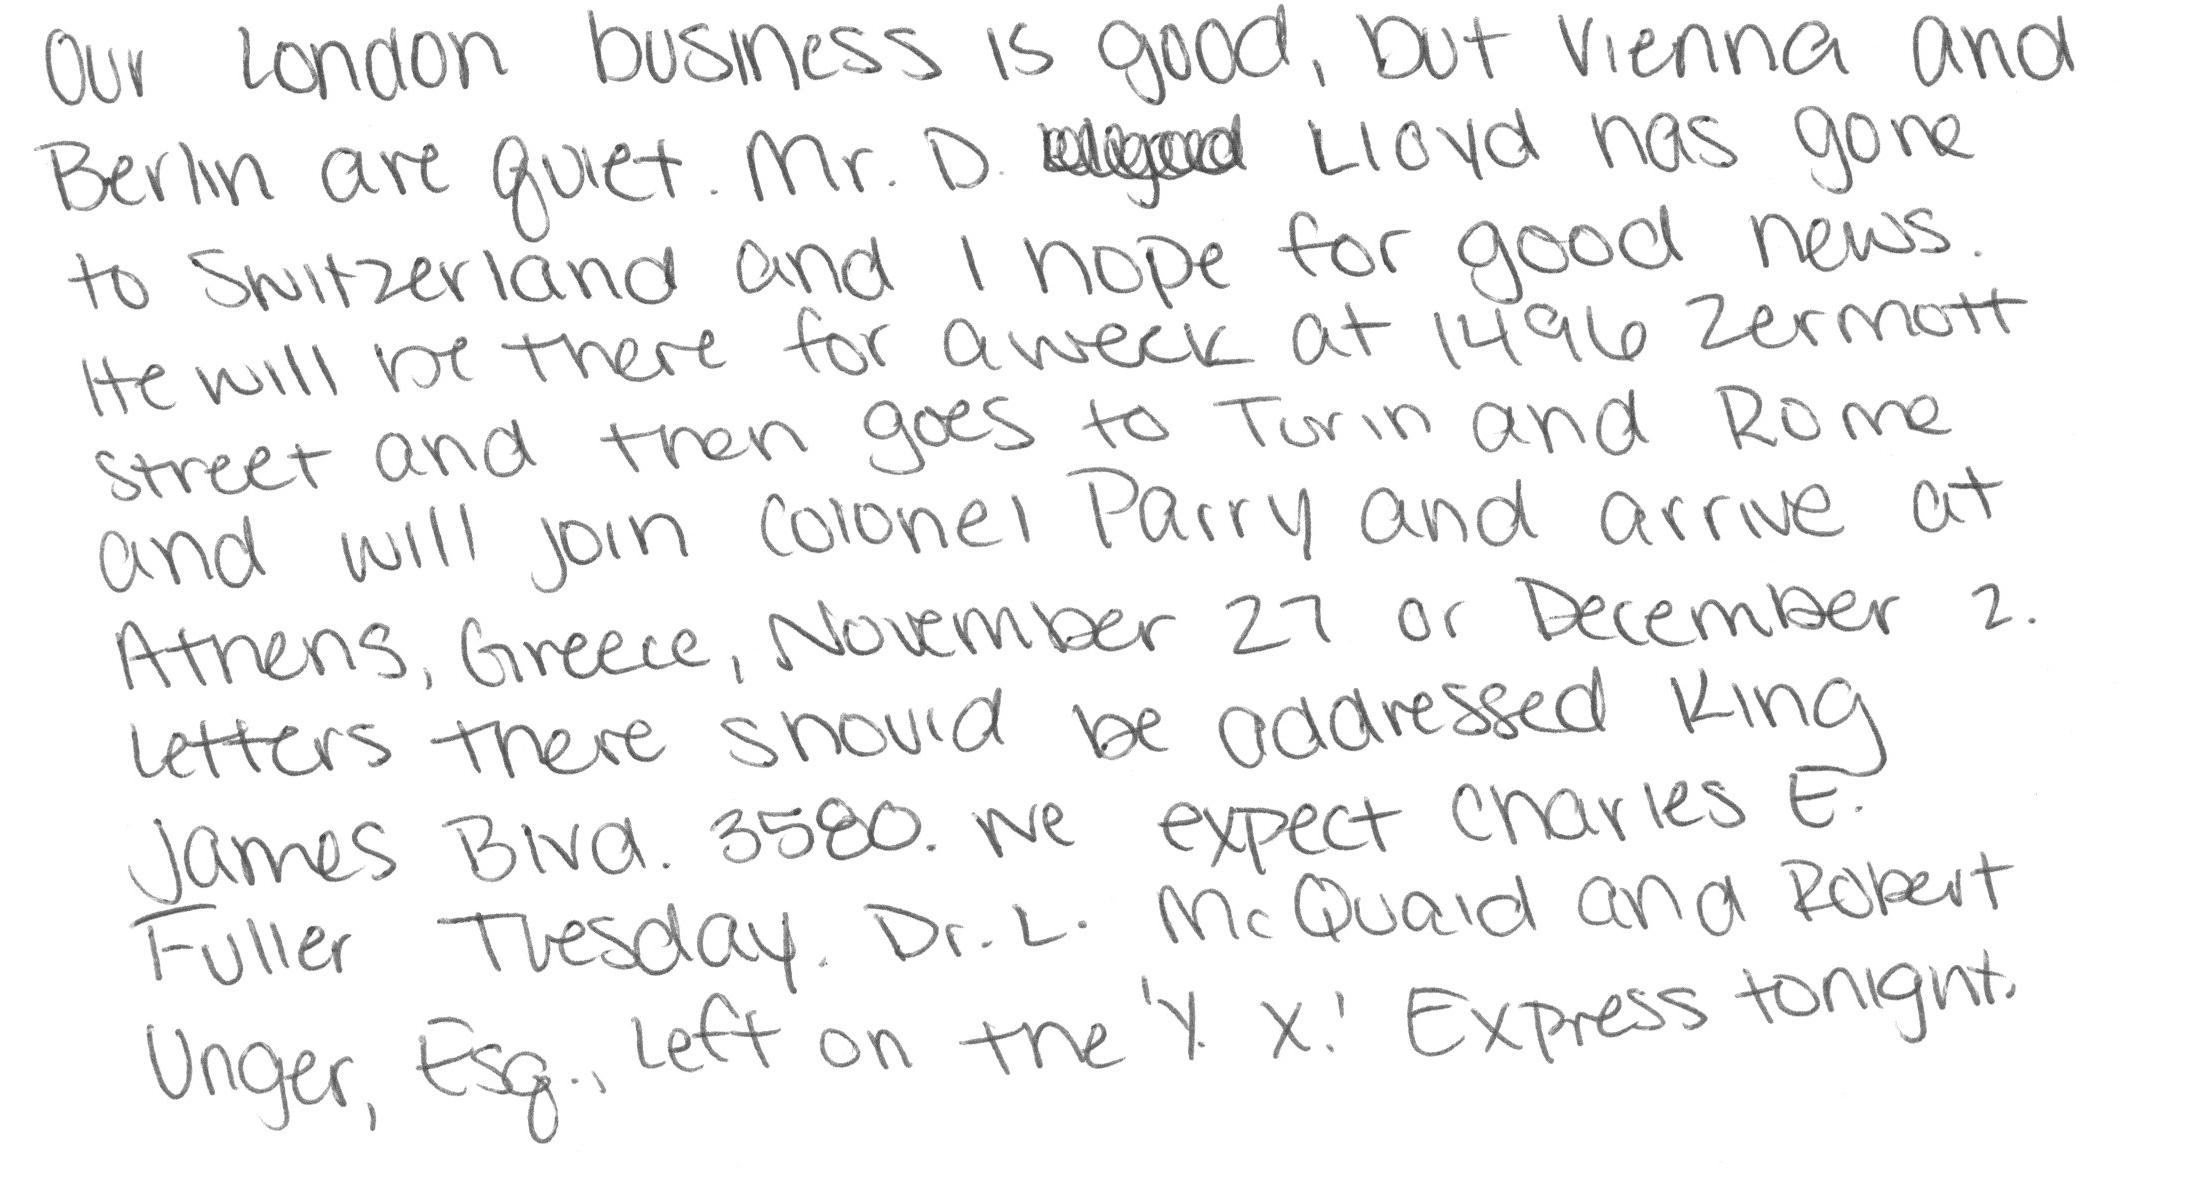 Our London business is good, but Vienna and
Berlin are quiet. Mr. D. Lloyd has gone
to Switzerland and I hope for good news.
He will be there for a week at 1496 Zermott
street and then goes to Turin and Rome
and will join Colonel Parry and arrive at
Athens, Greece, November 27 or December 2.
Letters there should be addressed King
James Blvd. 3580. We expect Charles E.
Fuller Tuesday. Dr. L. McQuaid and Robert
Unger, Esq., left on the 'Y. X.' Express tonight.